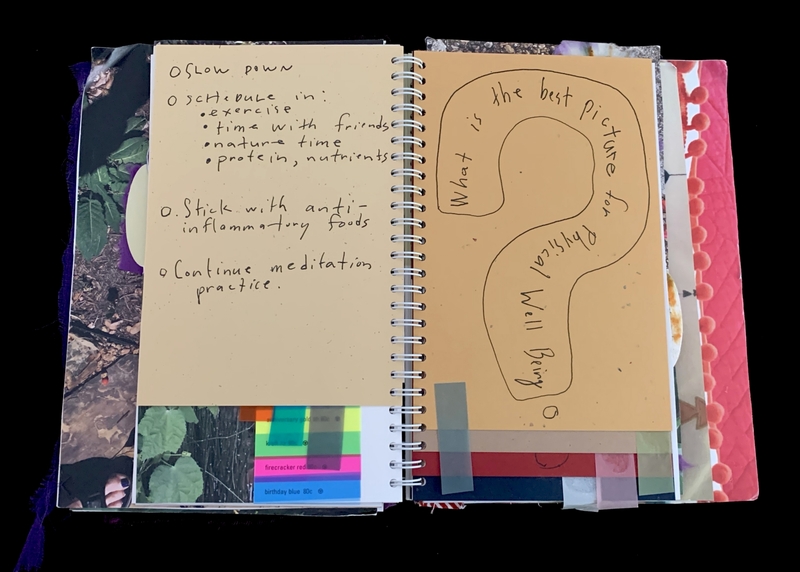 O SLOW DOWN
O SCHEDULE IN:
• exercise
• time with friends
• nature time
• protein, nutrients
O. Stick with anti-
inflammatory foods
O Continue meditation
practice.
What is the best picture for Physical Well Being
firecracker red
birthday blue 80s